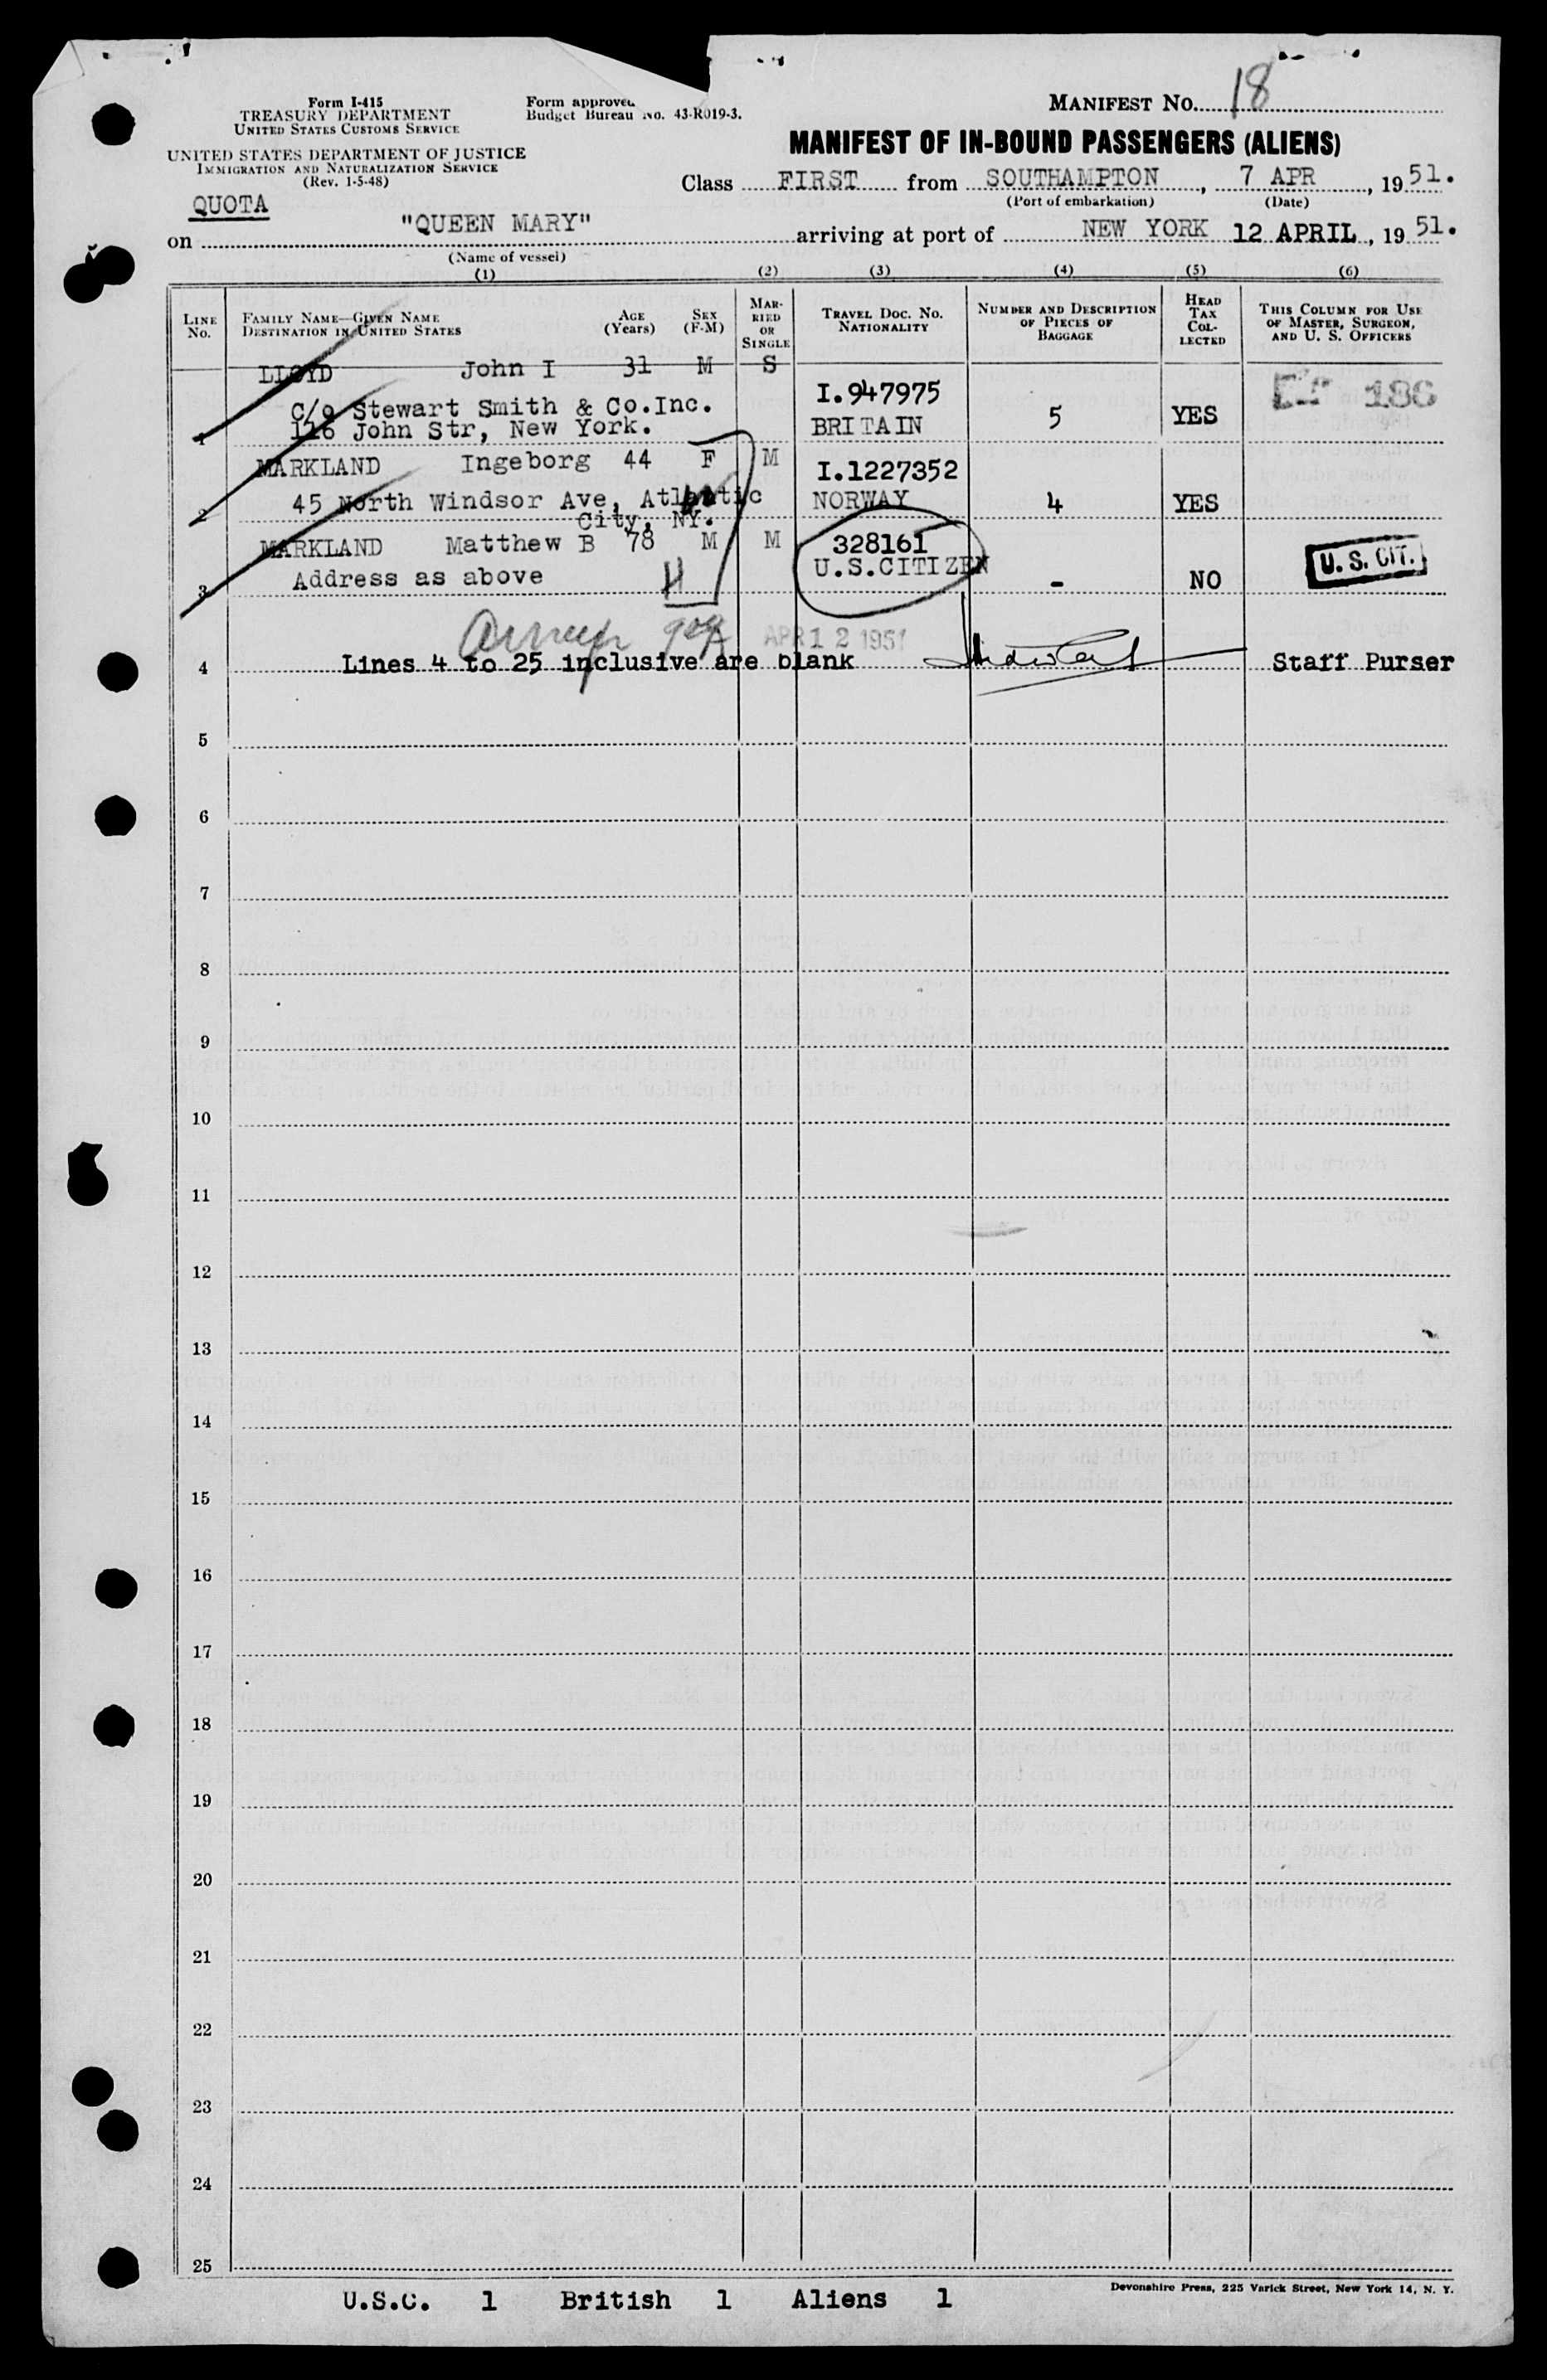 Form I-415
TREASURY DEPARTMENT
UNITED STATES CUSTOMS SERVICE
UNITED STATES DEPARTMENT OF JUSTICE
IMMIGRATION AND NATURALIZATION SERVICE
(Rev. 1-5-48)
Form approved
Budget Bureau No. 43-R019-3.
MANIFEST NO. 18
MANIFEST OF IN-BOUND PASSENGERS (ALIENS)
Class FIRST from SOUTHAMPTON, 7 APR, 1951.
(Port of embarkation) (Date)
QUOTA
on "QUEEN MARY" arriving at port of NEW YORK 12 APRIL, 1951.
(Name of vessel)
(1) (2) (3) (4) (5) (6)
LINE NO. FAMILY NAME—GIVEN NAME DESTINATION IN UNITED STATES AGE (Years) SEX (F-M) MARRIED OR SINGLE TRAVEL DOC. NO. NATIONALITY NUMBER AND DESCRIPTION OF PIECES OF BAGGAGE HEAD TAX COLLECTED THIS COLUMN FOR USE OF MASTER, SURGEON, AND U. S. OFFICERS
LLOYD John I 31 M S
I.947975
C/o Stewart Smith & Co.Inc.
1 116 John Str, New York. BRITAIN 5 YES 186
MARKLAND Ingeborg 44 F M I.1227352
2 45 North Windsor Ave, Atlantic NORWAY 4 YES
City, NY.
MARKLAND Matthew B 78 M M 328161
3 Address as above U.S.CITIZEN - NO U. S. CIT.
APR 12 1951
4 Lines 4 to 25 inclusive are blank Staff Purser
5
6
7
8
9
10
11
12
13
14
15
16
17
18
19
20
21
22
23
24
25
Devonshire Press, 225 Varick Street, New York 14, N. Y.
U.S.C. 1 British 1 Aliens 1